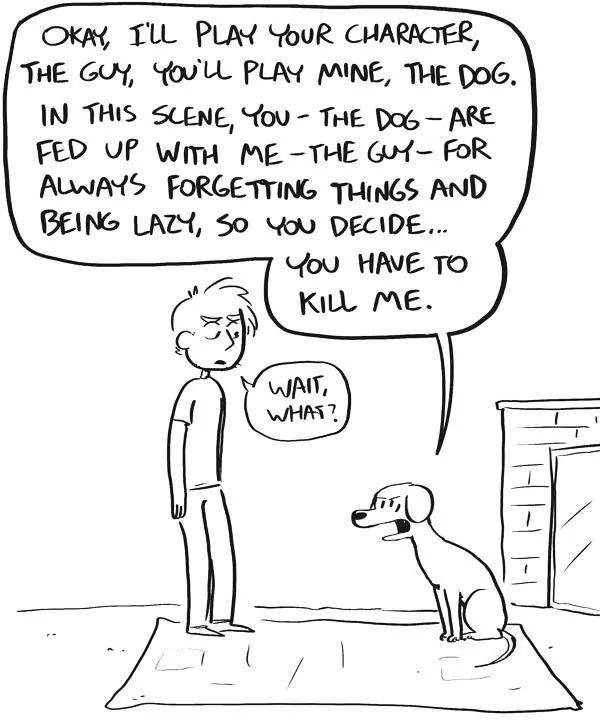 OKAY, I'LL PLAY YOUR CHARACTER,
THE GUY, YOU'LL PLAY MINE, THE DOG.
IN THIS SCENE, YOU - THE DOG - ARE
FED UP WITH ME - THE GUY - FOR
ALWAYS FORGETTING THINGS AND
BEING LAZY, SO YOU DECIDE...
YOU HAVE TO
KILL ME.
WAIT,
WHAT?